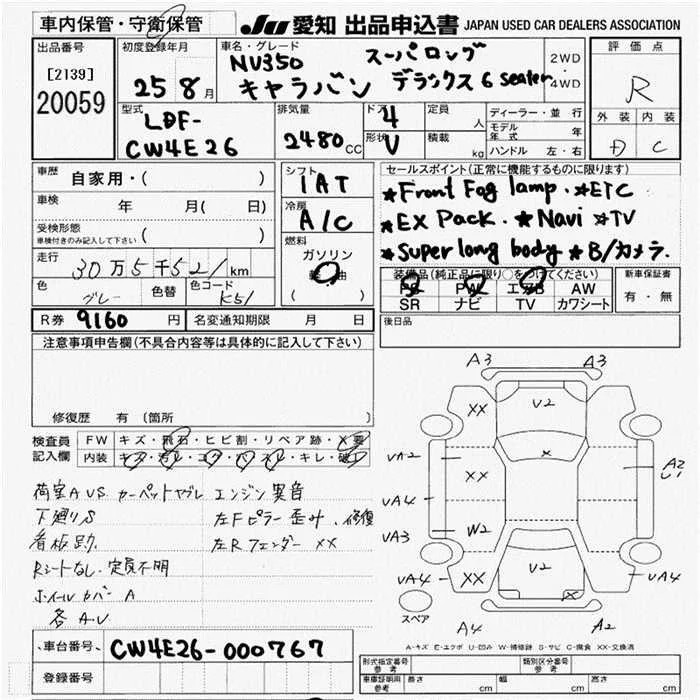 車内保管・守衛保管
JU 愛知 出品申込書 JAPAN USED CAR DEALERS ASSOCIATION
出品番号
[2139]
20059
初度登録年月
25 8月
車名・グレード
NV350 スーパーロング
キャラバン デラックス 6 seater
2WD
・
4WD
評価点
R
外装 内装
D C
型式
LDF-
CW4E26
排気量
2480 cc
ドア 4
形状 V
定員 人
積載 kg
ディーラー・並行
モデル年式 年
ハンドル 左・右
車歴 自家用・( )
車検 年 月( 日)
受検形態
車検付きのみ記入して下さい ( )
走行 30万5千521km
色 グレー 色替 色コード K51
シフト
IAT
冷房
A/C
燃料
ガソリン
軽油
( )
セールスポイント(正常に機能するものに限ります)
★Front Fog lamp. ★ETC
★EX Pack. ★Navi ★TV
★Super long body ★B/カメラ.
装備品(純正品に限り○をつけてください)
PS PW エアB AW
SR ナビ TV カワシート
新車保証書
有・無
R券 9160円 名変通知期限 月 日
後日品
注意事項申告欄(不具合内容等は具体的に記入して下さい)
修復歴 有 (箇所
検査員
記入欄
FW キズ・飛石・ヒビ割・リペア跡・X要
内装 キズ・汚レ・コゲ・穴・スレ・キレ・破レ
荷室AUS カーペットヤブレ エンジン異音
下廻りS 左Fピラー歪叶. 修復
看板跡. 左Rフェンダー XX
Rシートなし. 定員不明
ホイルカバー A
各 A.U
A3 A3
XX V2
UA2 XX X A2
U1
UA4
UA3 W2
V2
UA4 XX X UA4
スペア
A4 A2
A-キズ E-エクボ U-凹み W-補修跡 S-サビ C-腐食 XX-交換済
車台番号 CW4E26-000767
登録番号
形式指定番号
参考
類別区分番号
参考
車庫証明用
参考
長さ cm 幅 cm 高さ cm